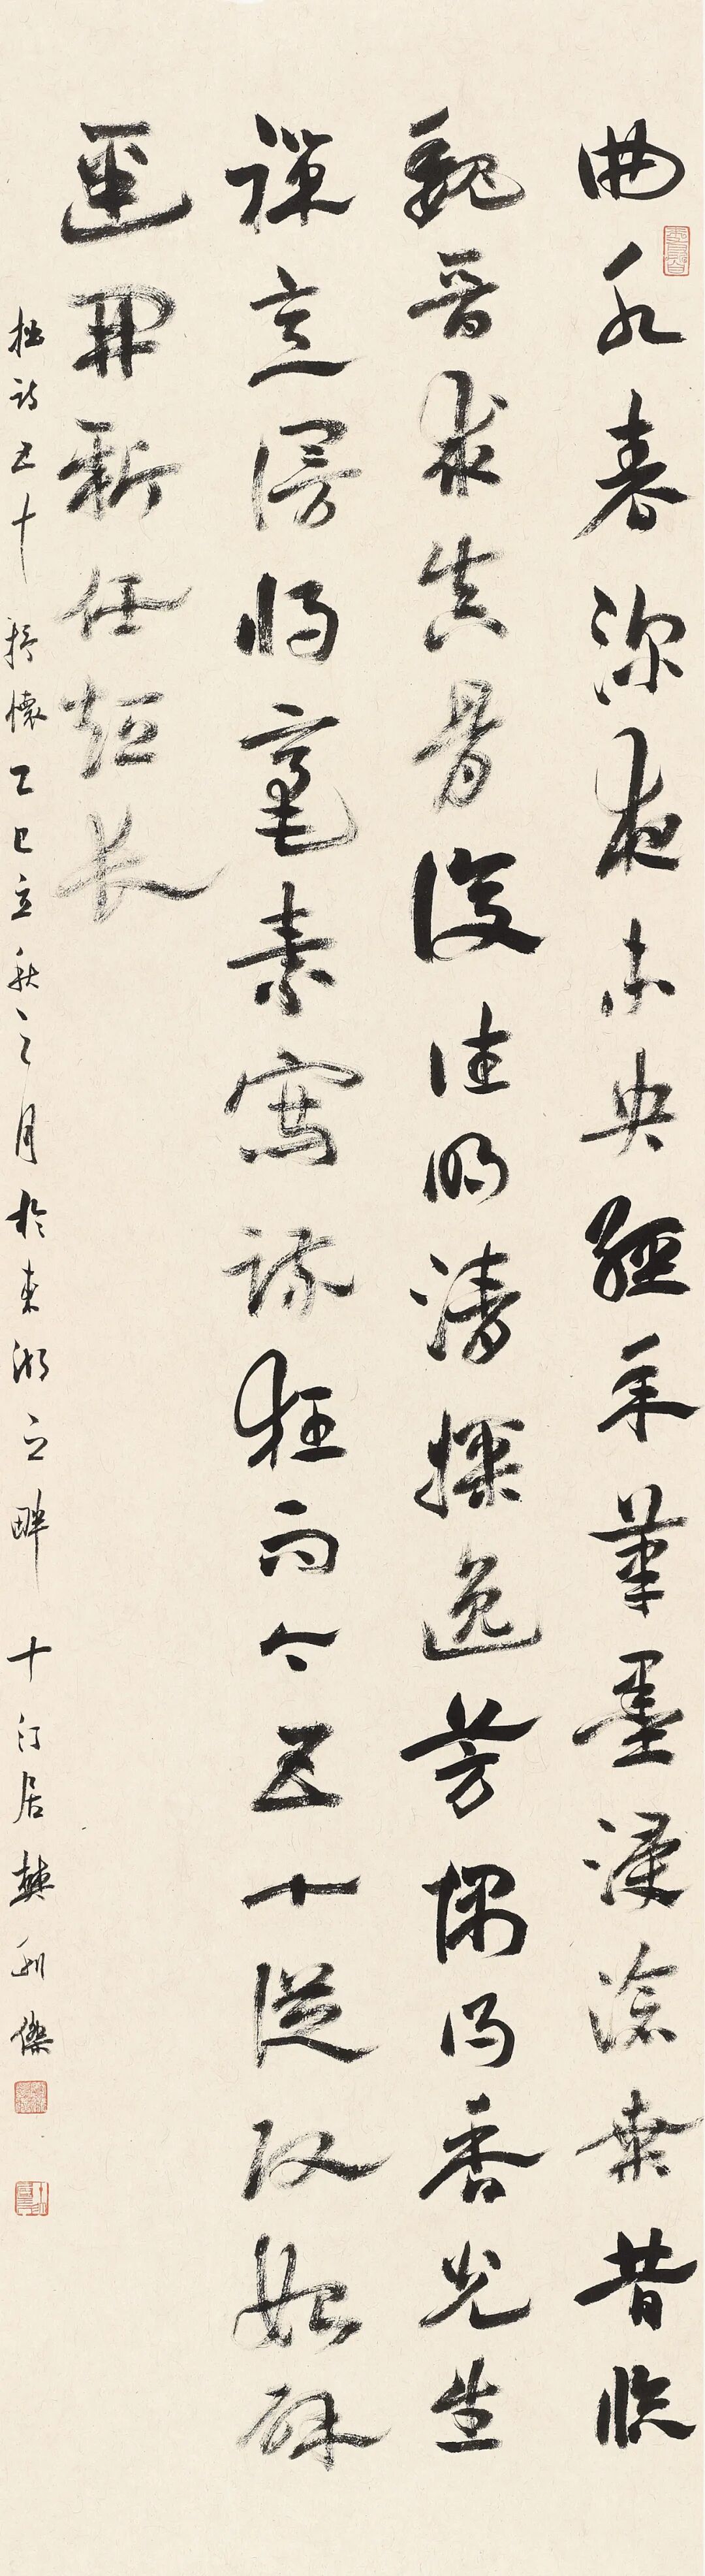 曲水春深夜未央經年筆墨浸滄桑昔臨
魏晉求真骨復往明清探逸芳偶得香光生
禪意漫將毫素寫疏狂而今五十從始
開新任短長
拙詩五十抒懷乙巳立秋之月於東湖之畔十汀居樊利傑